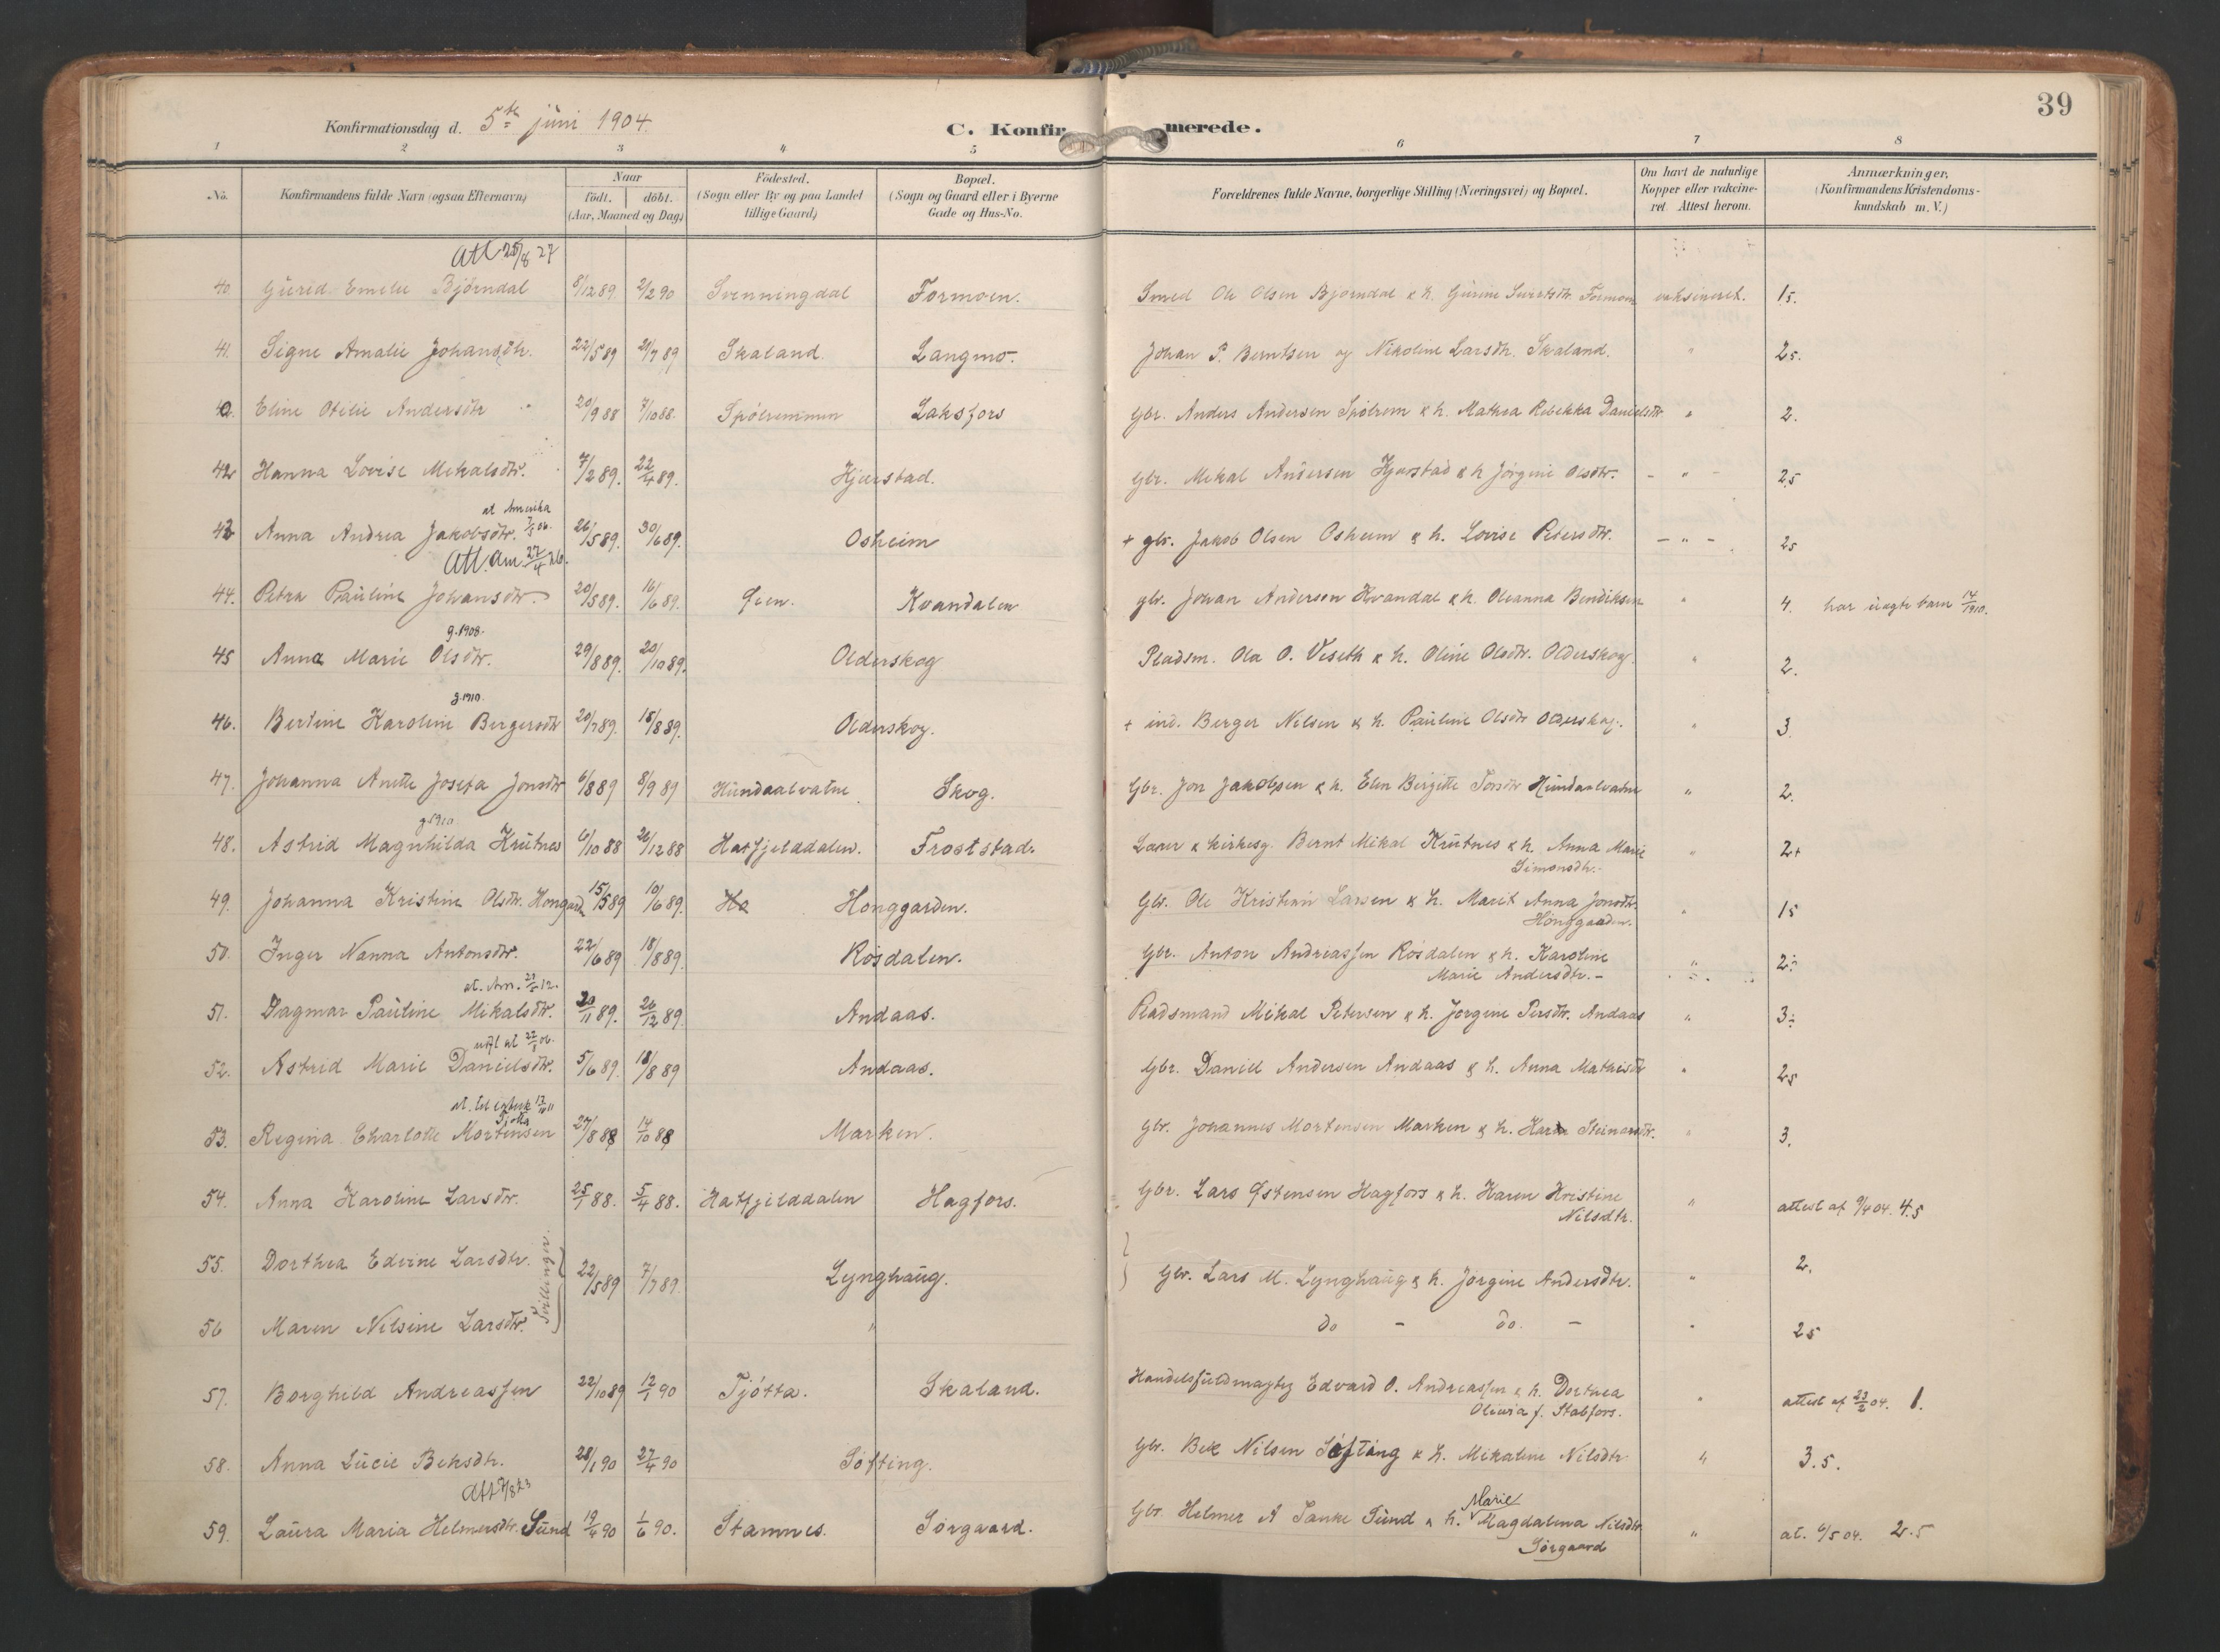 39
Konfirmationsdag d. 5te juni 1904.
C. Konfirmerede.
1 2 3 4 5 6 7 8
No.
Konfirmandens fulde Navn (ogsaa Efternavn)
Naar
født. døbt.
(Aar, Maaned og Dag)
Fødested.
(Sogn eller By og paa Landet
tillige Gaard)
Bopæl.
(Sogn og Gaard eller i Byerne
Gade og Hus-No.
Forældrenes fulde Navne, borgerlige Stilling (Næringsvei) og Bopæl.
Om havt de naturlige
Kopper eller vakcine-
ret Attest herom.
Anmærkninger,
(Konfirmandens Kristendoms-
kundskab m. V.)
Att 25/8 27
40. Gurid Emelie Bjørndal 8/12 89 2/2 90 Svenningdal Formoen. Smed Ole Olsen Bjørndal & h. Gurine Sivertsdtr. Formoen vaksineret. 15.
41. Signe Amalie Johansdtr. 22/5 89 21/7 89 Skaland. Langmo. Johan P. Berntsen og Nikoline Larsdtr. Skaland. " 25.
Eline Otilie Andersdtr 20/9 88 7/10 88. Spólremmen Laksfors Gbr. Anders Andersen Spólrem & h. Mathea Rebekka Danielsdtr " 2.
42 Hanna Lovise Mikalsdtr. 7/2 89. 22/4 89. Hjerstad. Gbr. Mikal Andersen Hjerstad & h Jørgine Olsdtr. - " - 25
at Amerika
43 Anna Andrea Jakobsdtr. 26/5 89. 30/6 89. Osheim + gbr. Jakob Olsen Osheim & h. Lovise Petersdtr. - " - 25
Att. Am. 27/4 26.
44. Petra Pauline Johansdtr. 20/5 89. 16/6 89. Kvandalen gbr. Johan Andersen Kvandal & h. Oleanna Bendiksen " 4. har uægte barn 14/1910.
g. 1908.
45 Anna Marie Olsdtr. 29/8 89. 20/10 89. Olderskog Pladsm. Ola O. Veseth & h. Oline Olsdtr. Olderskog. " 2.
g. 1910.
46. Bertine Karoline Bergersdtr 20/7 89. 18/8 89. Olderskog. + ind. Berger Nilsen & h. Pauline Olsdtr Olderskog. " 3.
47. Johanna Anette Josefa Jonsdtr 6/8 89 8/9 89 Hundaalvatne Skog. Gbr. Jon Jakobsen & h. Elen Birgitte Torsdtr Hundaalvatne " 2.
g. 1910.
48. Astrid Magnhilda Krutnes 6/10 88 26/12 88 Hatfjelddalen. Froststad. Lærer & kirkesg. Bernt Mikal Krutnes & h. Anna Marie " 2+
Simonsdtr.
49. Johanna Kristine Olsdtr. Honggarden 15/5 89 10/6 89. Ha Honggarden. Gbr. Ole Kristian Larsen & h. Marit Anna Jonsdtr. " 15
Honggaarden.
50. Inger Nanna Antonsdtr. 22/6 89 18/8 89. Røsdalen. Gbr. Anton Andreassen Røsdalen & h. Karoline " 2÷
Marie Andersdtr. -
at. Am. 12.
51. Dagmar Pauline Mikalsdtr. 20/11 89. 26/12 89. Andaas. Pladsmand Mikal Petersen & h. Jørgine Persdtr. Andaas " 3÷
52. Astrid Marie Danielsdtr. 5/6 89. 18/8 89 Andaas. Gbr. Daniel Andersen Andaas & h. Anna Mathisdtr " 25
Tjøtta
53. Regina Charlotte Mortensen 27/8 88 14/10 88 Marken. Gbr. Johannes Mortensen Marken & h. Karen Steinarsdtr. " 3.
54. Anna Karoline Larsdtr. 25/1 88. 5/4 88. Hatfjelddalen Hagfors. Gbr. Lars Østensen Hagfors & h. Karen Kristine " attest af 9/4 04. 4.5
Nilsdtr.
55. Dorthea Edvine Larsdtr. Tvillinger. 22/5 89 7/7 89. Lynghaug. Gbr. Lars M. Lynghaug & h. Jørgine Andersdtr. " 2.
56 Maren Nilsine Larsdtr. " do - do. - " 25
57. Borghild Andreassen 22/10 89 12/1 90 Tjøtta. Skaland. Handelsfuldmægtig Edvard O. Andreassen & h. Dorthea " attest af 23/2 04. 1.
Olivia f. Stabfors.
58. Anna Lucie Beksdtr. 28/1 90 27/4 90 Søfting. Gbr. Bek Nilsen Søfting & h. Mikaline Nilsdtr. " 3.5.
Att 7/8 23
59. Laura Maria Helmersdtr. Sund 19/4 90 1/6 90. Stamnes. Sørgaard. Gbr. Helmer A Tanke Sund & h. Marie Magdalena Nilsdtr. " at. 6/5 04. 2.5
Sørgaard